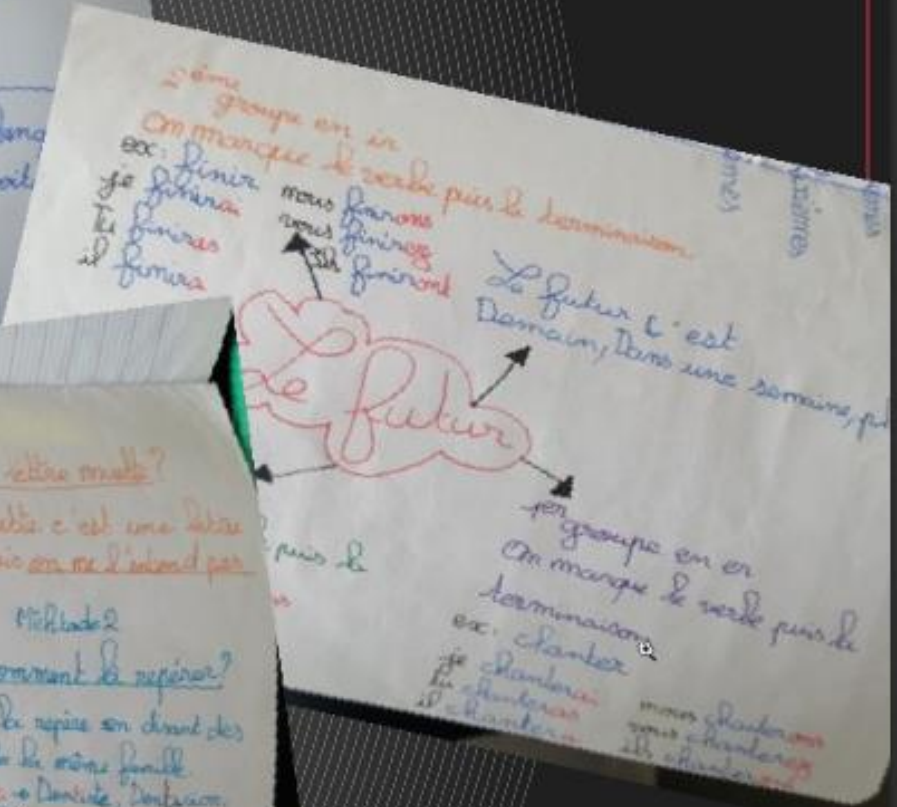 2ème
groupe en ir
On marque le verbe puis la terminaison.
ex: finir
je finirai
tu finiras
il finira
nous finirons
vous finirez
ils finiront
Le futur c'est
Demain, Dans une semaine,
Le futur
1er groupe en er
On marque le verbe puis la
terminaison
ex: chanter
je chanterai
tu chanteras
il chantera
nous chanterons
vous chanterez
ils
puis la
lettre muette?
c'est une lettre
on ne l'entend pas
Méthode 2
comment la repérer?
la repère en disant des
la même famille